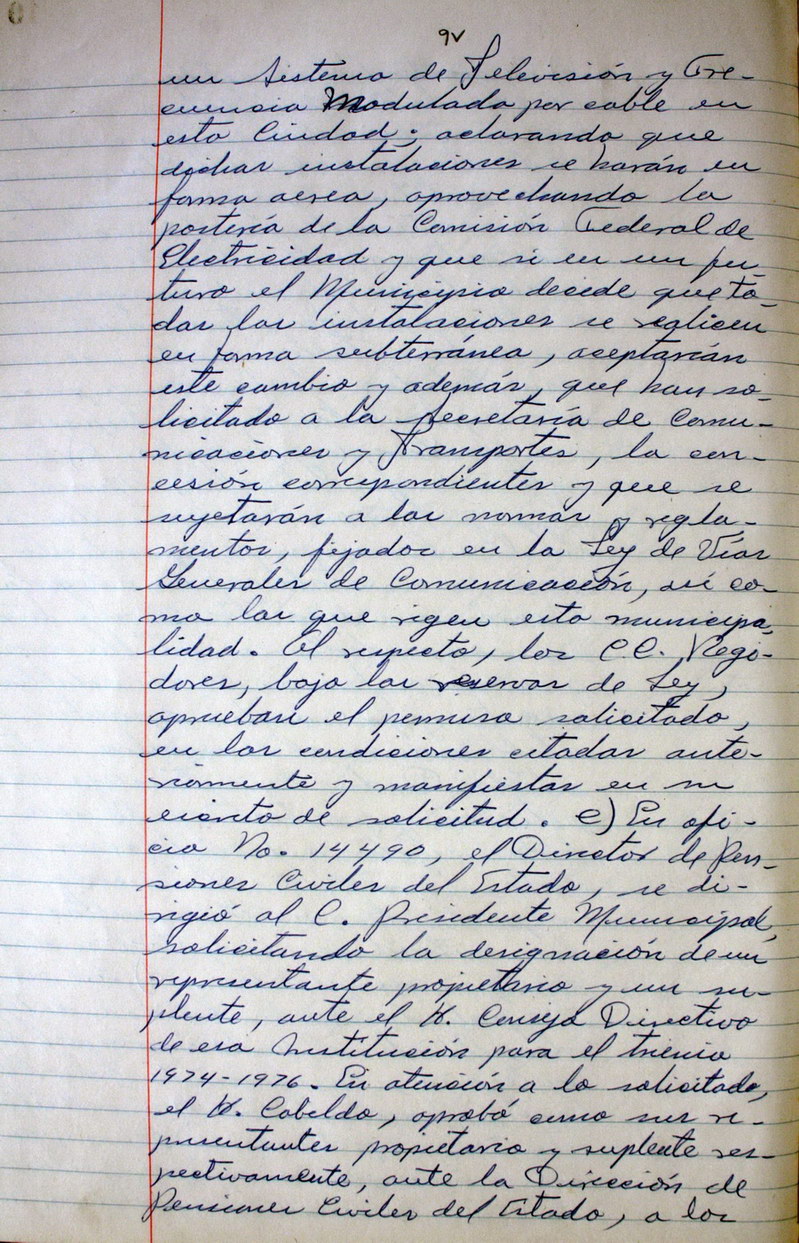 9v
un Sistema de Televisión y Fre-
cuencia Modulada por cable en
esta Ciudad; aclarando que
dichas instalaciones se harán en
forma aerea, aprovechando la
postería de la Comisión Federal de
Electricidad y que si en un fu-
turo el Municipio decide que to-
das las instalaciones se realicen
en forma subterránea, aceptarían
este cambio y además, que han so-
licitado a la Secretaría de Comu-
nicaciones y Transportes, la con-
cesión correspondientes y que se
sujetarán a las normas y regla-
mentos, fijados en la Ley de Vías
Generales de Comunicación, así co-
mo las que rigen esta municipa-
lidad. Al respecto, los C.C. Regi-
dores, bajo las reservas de Ley,
aprueban el permiso solicitado,
en las condiciones citadas ante-
riormente y manifiestas en su
escrito de solicitud. e) En ofi-
cio No. 14490, el Director de Pen-
siones Civiles del Estado, se di-
rigió al C. Presidente Municipal,
solicitando la designación de un
representante propietario y un su-
plente, ante el H. Consejo Directivo
de esa Institución para el trienio
1974-1976. En atención a lo solicitado,
el H. Cabildo, aprobó como sus re-
presentantes propietario y suplente res-
pectivamente, ante la Dirección de
Pensiones Civiles del Estado, a los